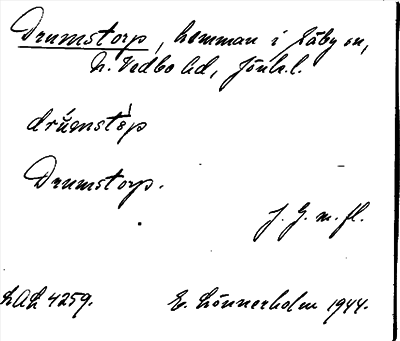 Drumstorp, hemman i Säby sn,
N. Vedbo hd, Jönk. l.
drŭmstȯp
Drumstorp.
J. G. m. fl.
LAL 4259. E. Lönnerholm 1944.